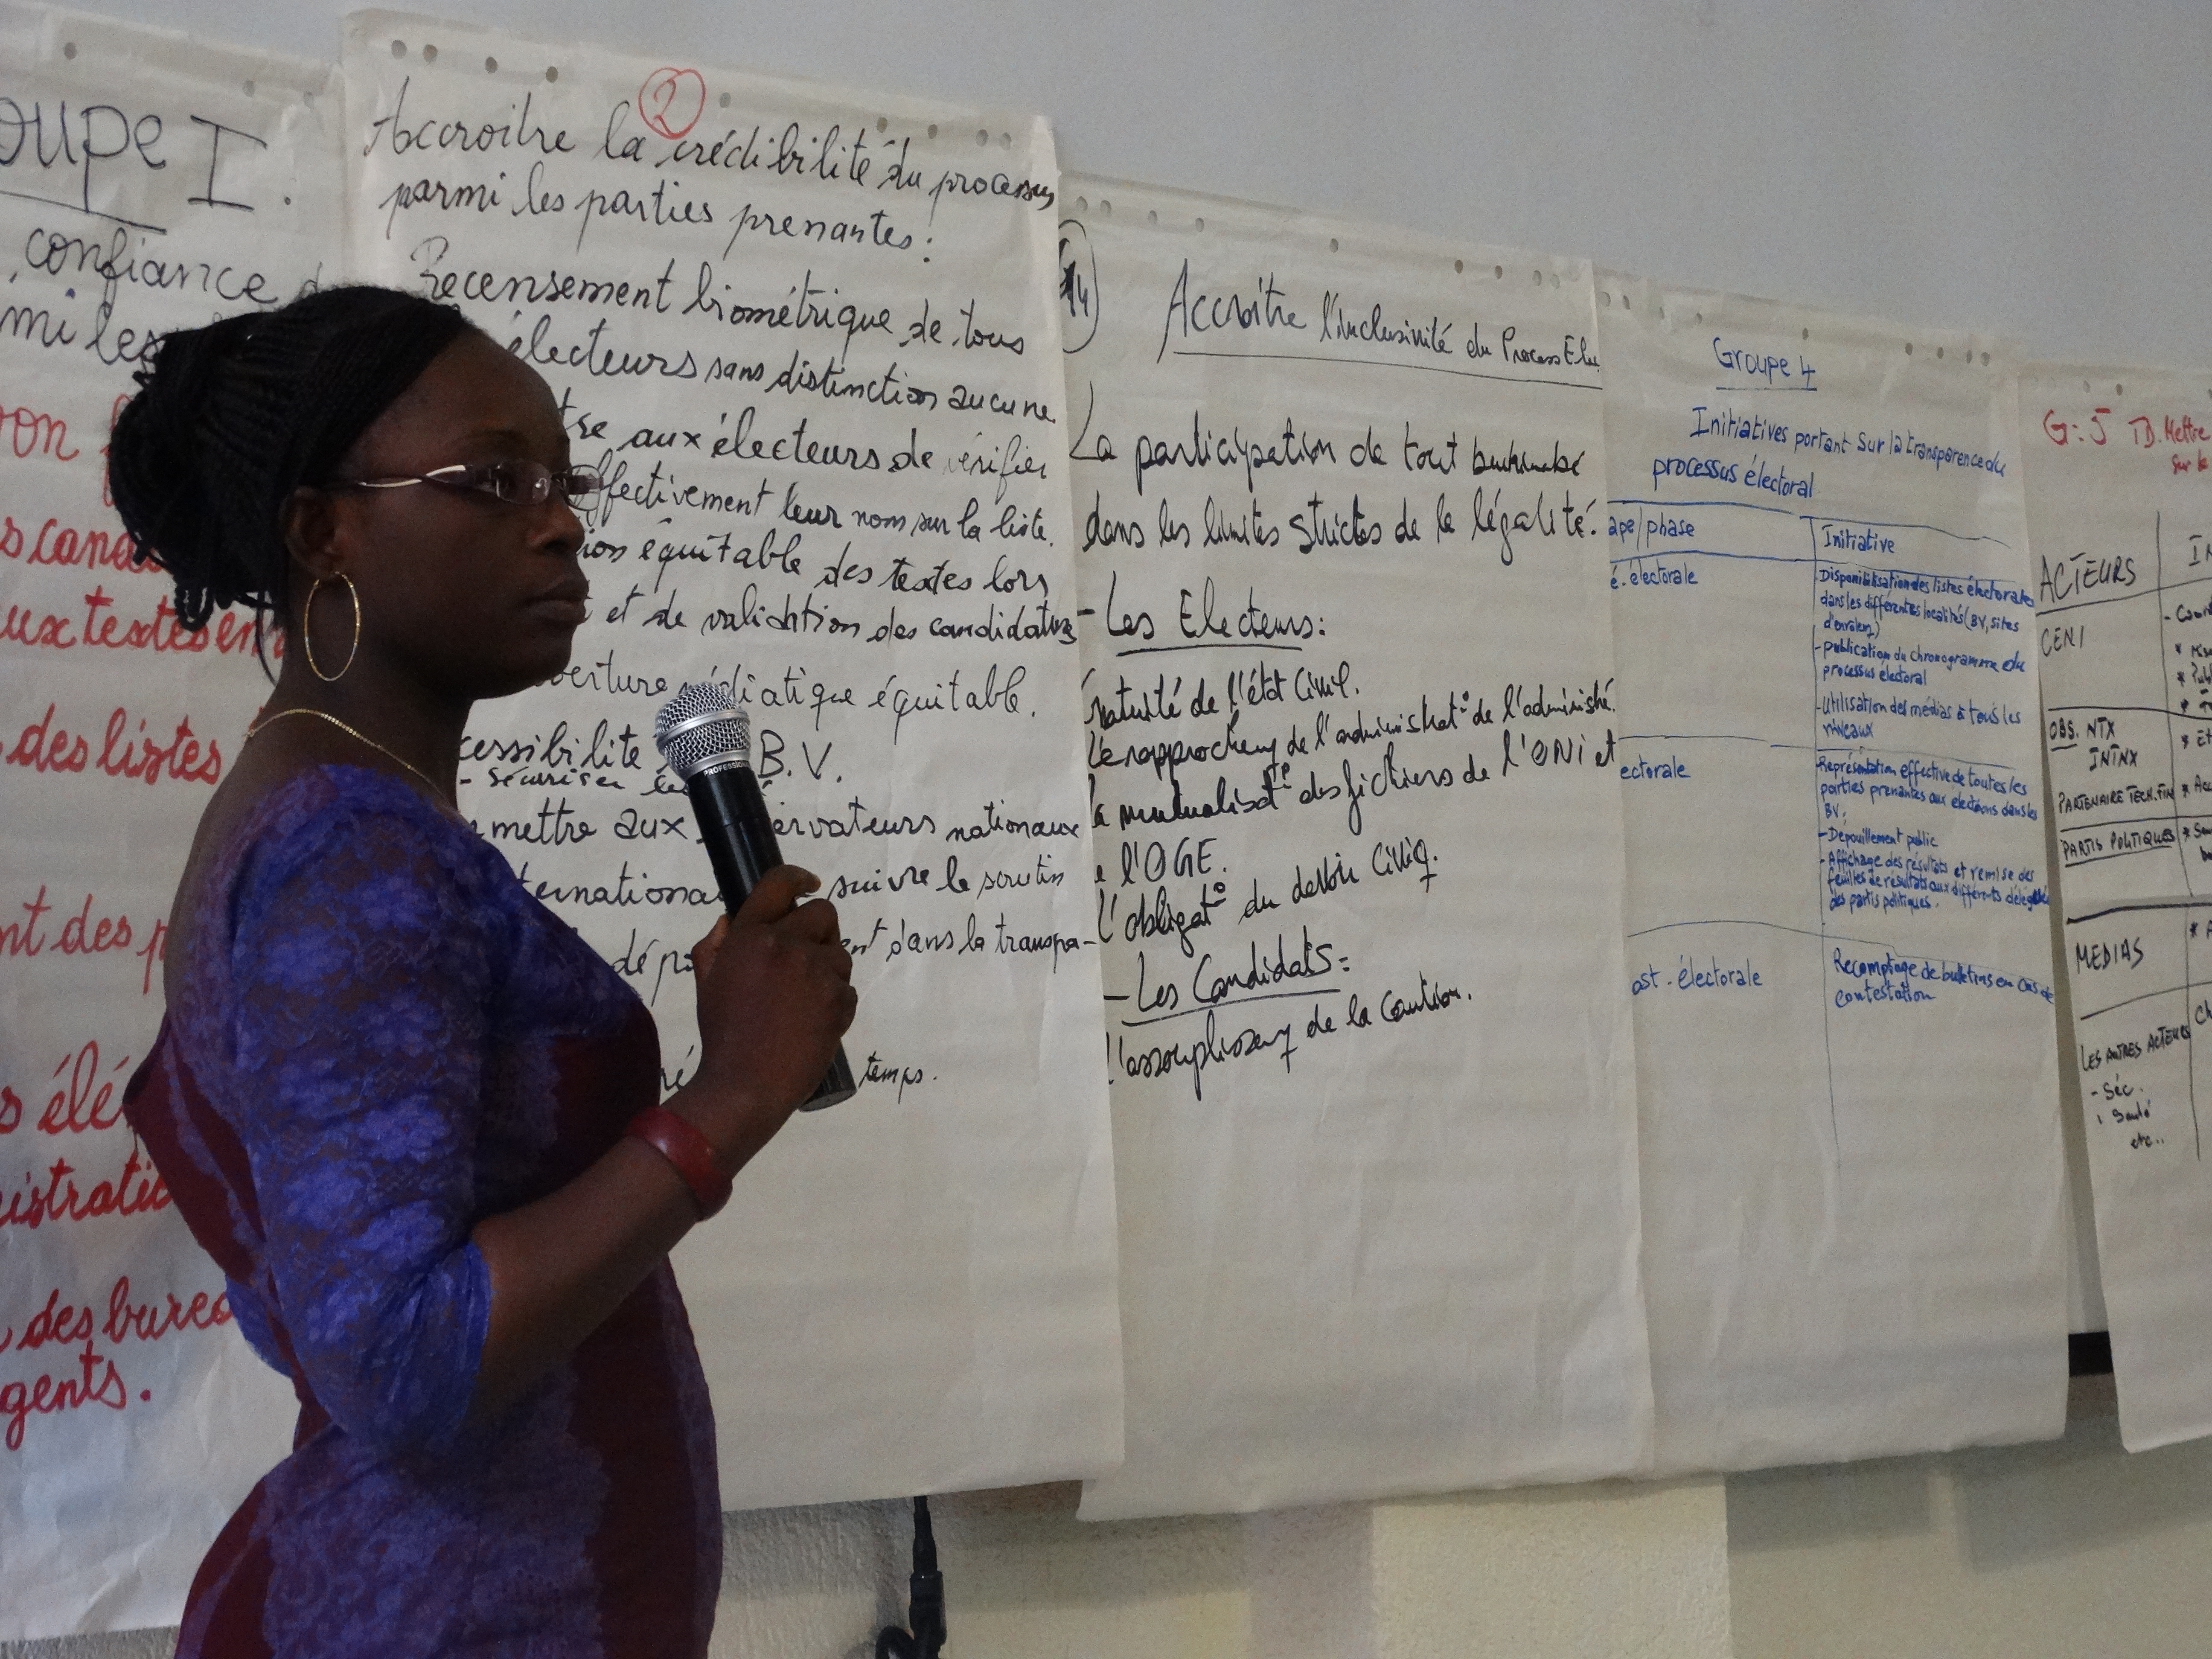 oupe I.
confiance
mi les
on
s cand
ux textes en
des listes
nt des p
s élé
istratio
des burea
gents.
2
Accroitre la crédibilité du processus
parmi les parties prenantes:
Recensement biométrique de tous
électeurs sans distinction aucune
tre aux électeurs de vérifier
effectivement leur nom sur la liste.
ion équitable des textes lors
et de validation des candidatures
verture médiatique équitable.
cessibilite B.V.
- sécuriser les
mettre aux ervateurs nationaux
ternationa suivre le scrutin
dép ent dans la transpa-
ré temps.
PROFESSION
Accroitre l'inclusivité du Process Elec
La participation de tout burkinabè
dans les limites strictes de la légalité.
- Les Electeurs:
Gratuité de l'état Civil.
Le rapprochemt de l'administrat° de l'administré.
la mutualisat° des fichiers de l'ONI et
e l'OGE.
l'obligat° du devoir Civiq.
- Les Candidats:
l'assouplissemt de la Caution.
Groupe 4
Initiatives portant sur la transparence du
processus électoral
ape/phase Initiative
é-électorale
- Disponibilisation des listes électorales
dans les différentes localités (BV, sites
d'enrolemt)
- publication du chronogramme du
processus électoral
- Utilisation des médias à tous les
niveaux
ectorale
- Représentation effective de toutes les
parties prenantes aux élections dans les
BV;
- Dépouillement public
- Affichage des résultats et remise des
feuilles de résultats aux différents délégués
des partis politiques.
ost-électorale
Recomptage de bulletins en cas de
contestation
G:5 Mettre
sur le
ACTEURS IN
CENI
OBS. NTX
ININX
PARTENAIRE TECH.FIN
PARTIS POLITIQUES
MEDIAS
LES AUTRES ACTEURS
- Séc.
Santé
etc..